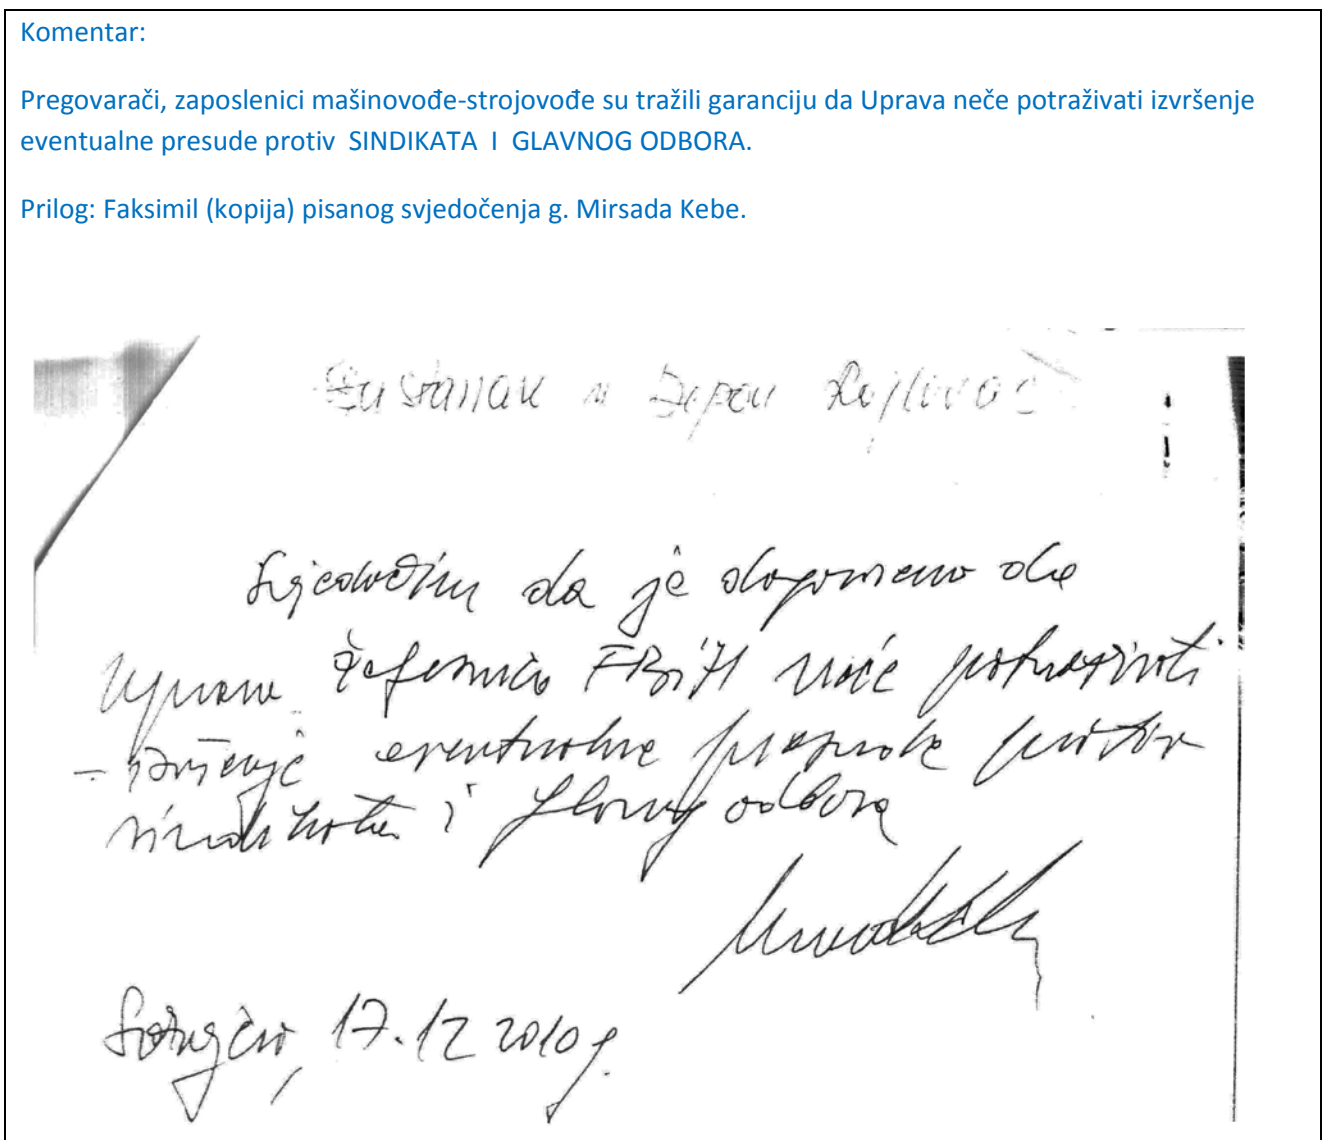 Komentar:
Pregovarači, zaposlenici mašinovođe-strojovođe su tražili garanciju da Uprava neče potraživati izvršenje
eventualne presude protiv SINDIKATA I GLAVNOG ODBORA.
Prilog: Faksimil (kopija) pisanog svjedočenja g. Mirsada Kebe.
Sastanak u Depou Rajlovac
Svjedočim da je dogovoreno da
Uprava Željeznica FBiH neće potraživati
izvršenje eventualne presude protiv
sindikata i glavnog odbora
Sarajevo, 17.12 2010 g.